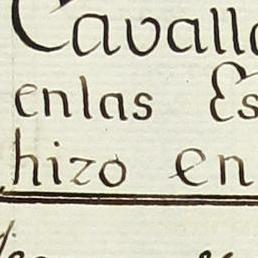 Cavalla
enlas Es
hizo en